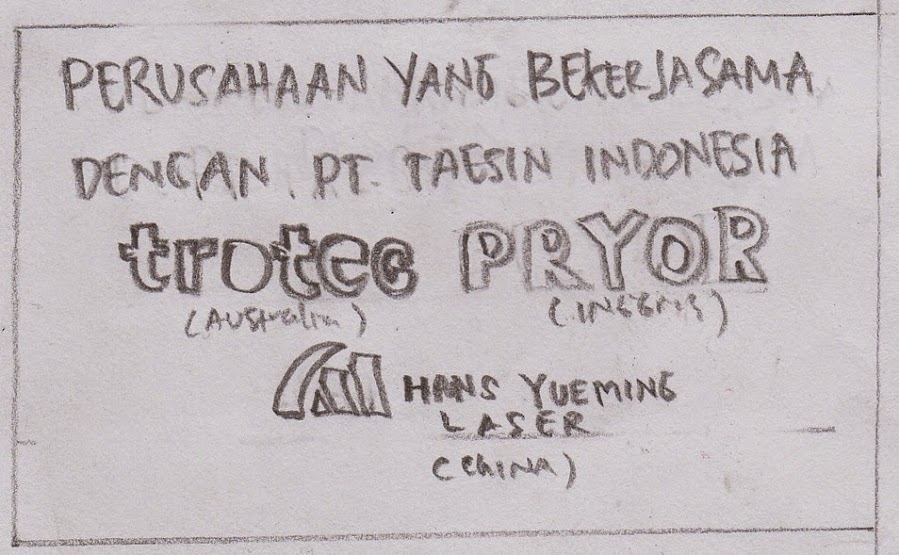 PERUSAHAAN YANG BEKERJASAMA
DENGAN. PT. TAESIN INDONESIA
trotec PRYOR
(AUStralia) (INGGRIS)
HANS YUEMING
LASER
(CHINA)